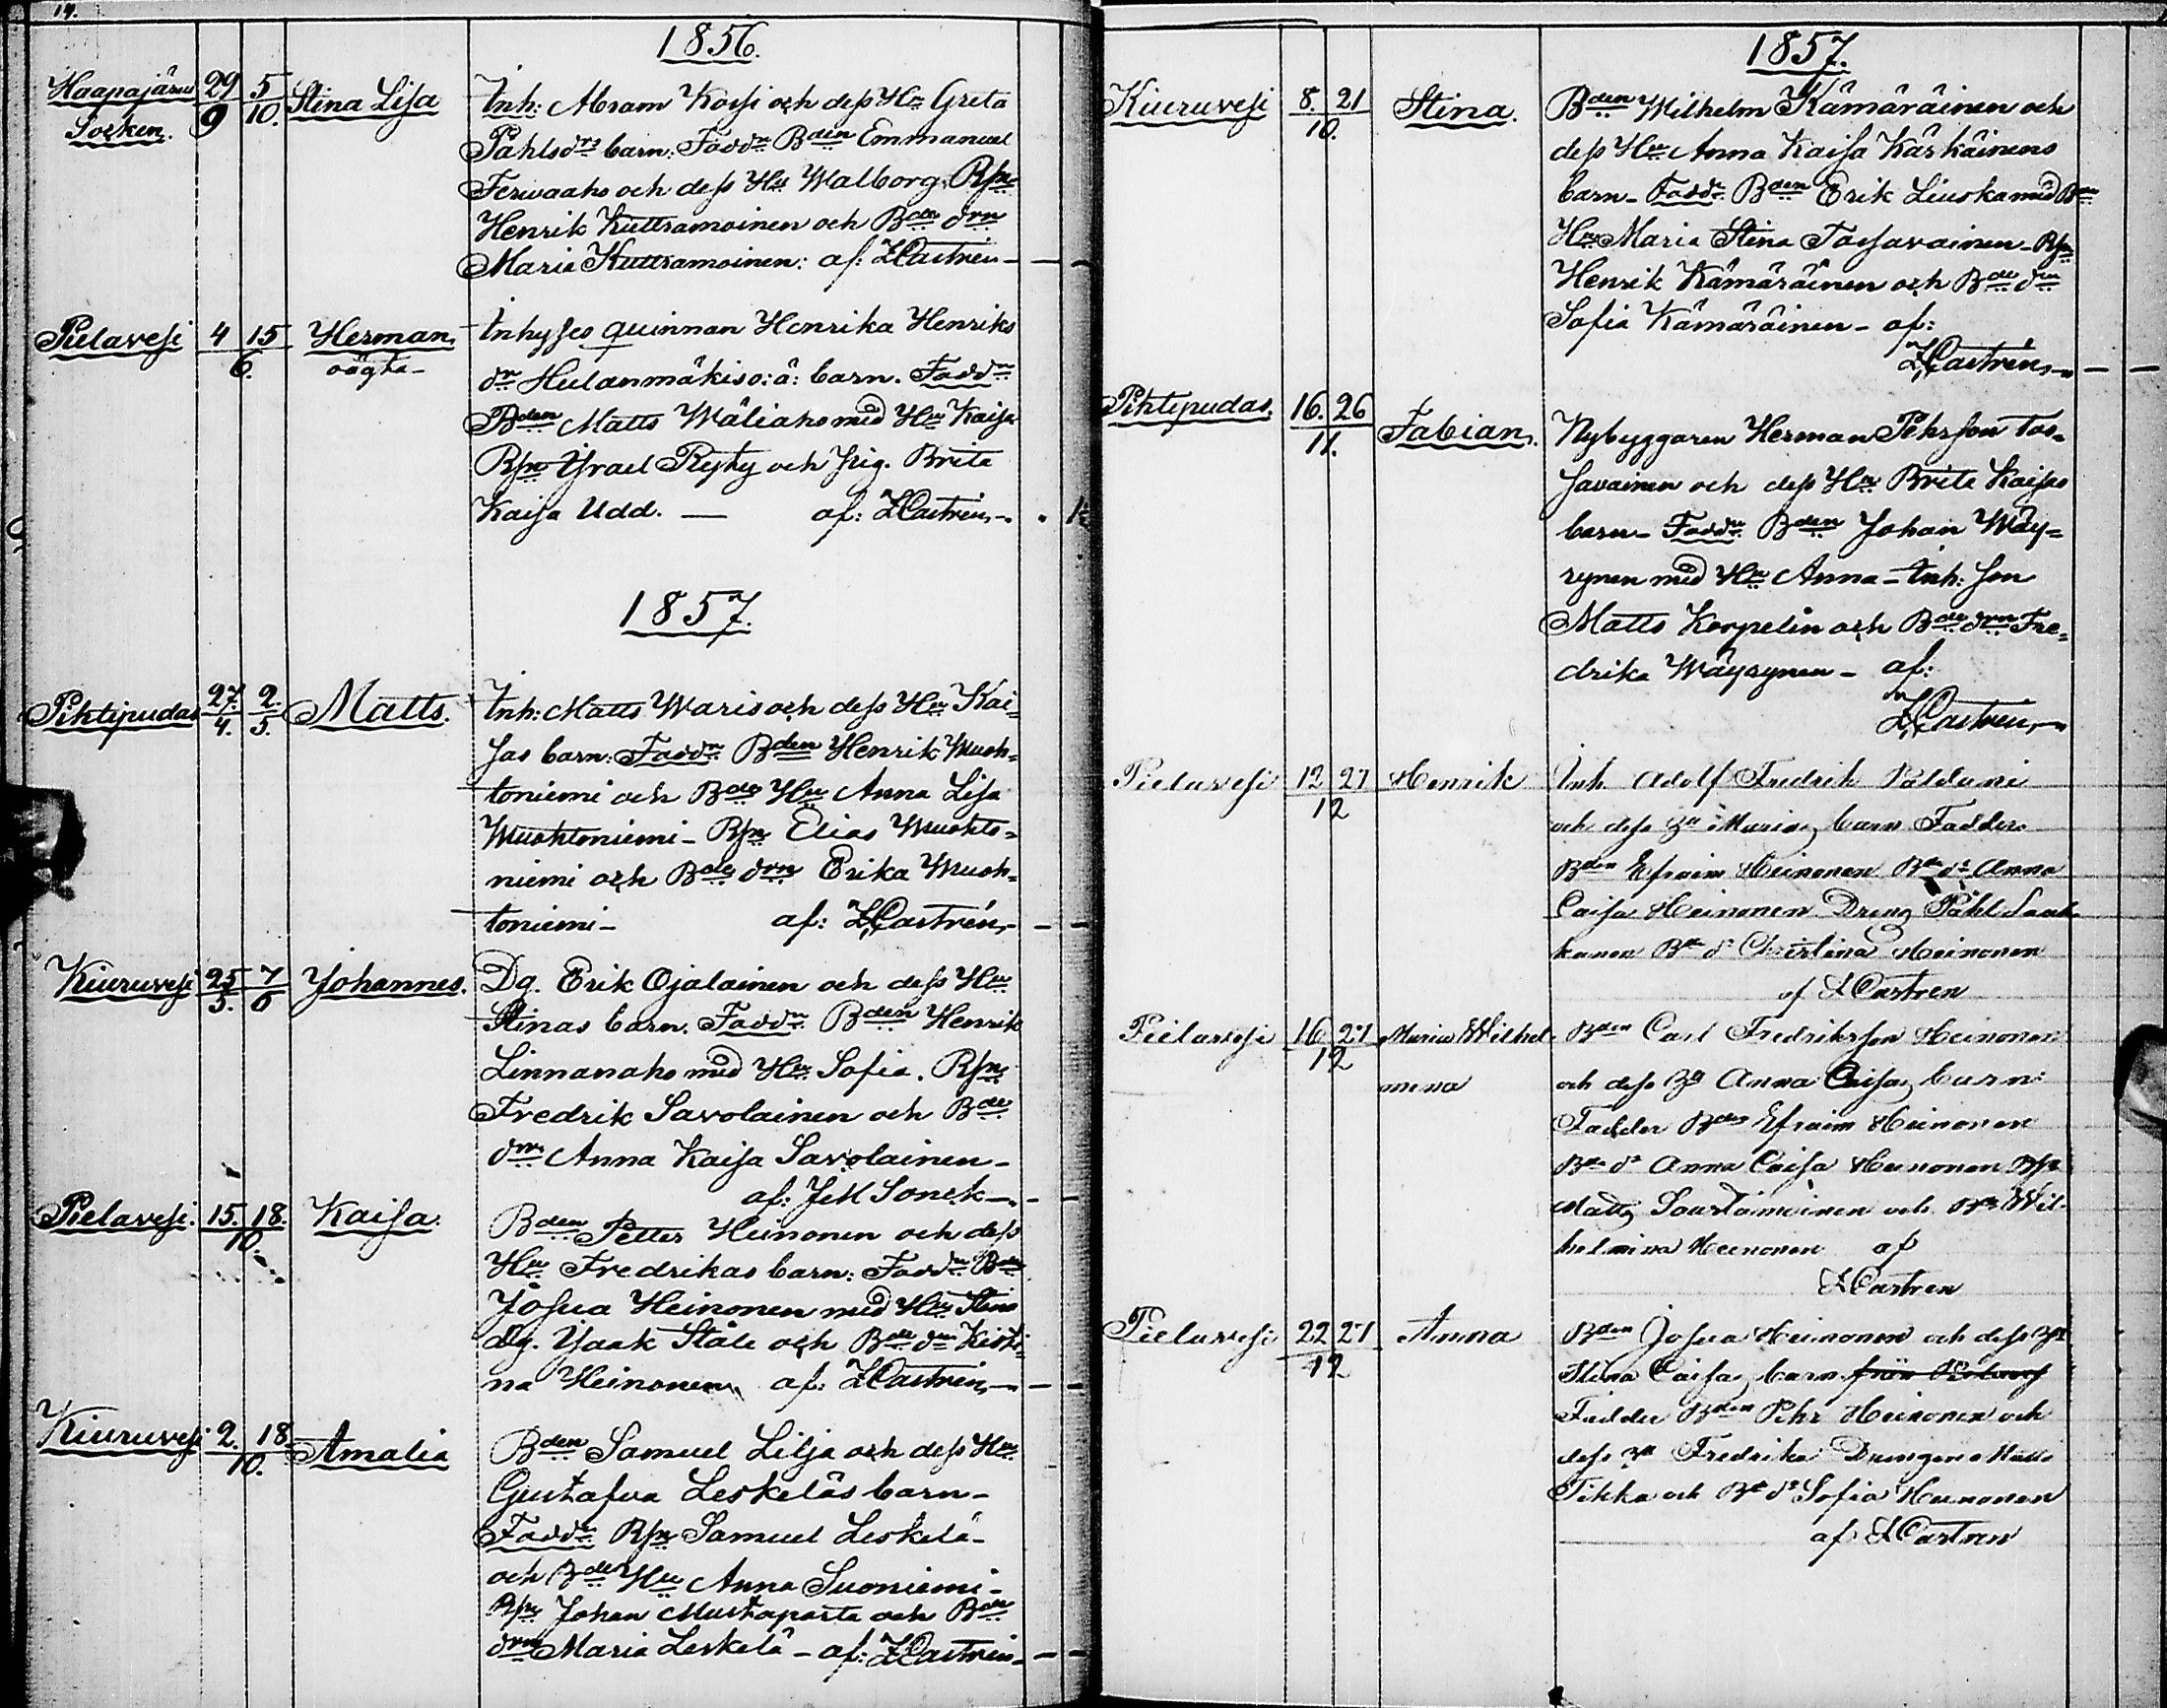 14.
1856.
Haapajärvi 29 5 Stina Lisa Inh: Abram Kossi och dess Hu Greta
Socken. 9 10. Påhlsdrs barn: Faddr Bden Emmanuel
och dess Hu Walborg, Rpn
Henrik Kuttramoinen och Bde drn
Maria Kuttramoinen: af: ZCastrén
Pielavesi 4 15 Herman, Inhyses quinnan Henrika Henriks
6. oägta dr Hulanmäkis o: ä: barn. Faddr
Bden Matts Wäliaho med Hu Kaisa
Rpn Israel Ryty och pig. Brita
Kaisa Udd. — af: ZCastrén
1857.
Pihtipudas 27. 2. Matts. Inh: Matts Waris och dess Hu Kai=
4. 5. sas barn: Faddr Bden Henrik Wuoh=
toniemi och Bde Hu Anna Lisa
Wuohtoniemi – Rpn Elias Wuohto=
niemi och Bde drn Erika Wuoh=
toniemi – af: ZCastrén
Kiuruvesi 25 7 Johannes. Dg. Erik Ojalainen och dess Hu
5. 6 Stinas barn. Faddr Bden Henrik
Linnanaho med Hu Sofia. Rpn
Fredrik Savolainen och Bde
drn Anna Kaisa Savolainen –
af:
Pielavesi. 15. 18. Kaisa. Bden Petter Heinonen och dess
10. Hu Fredrikas barn: Faddr Bden
Josua Heinonen med Hu Stina
dg. Isaak Ståle och Bde drn Kisti=
na Heinonen, af: ZCastrén
Kiuruvesi 2. 18 Amalia Bden Samuel Lilja och dess Hu
10. Gustafva Leskeläs barn –
Faddr Rpn Samuel Leskelä –
och Bde Hu Anna Suoniemi –
Rpn Johan Mustaparta och Bde
drn Maria Leskelä – af: ZCastrén
1857.
Kiuruvesi 8. 21 Stina. Bden Wilhelm Kämäräinen och
10. dess Hu Anna Kaisa Kärkäinens
barn – Faddr Bden Erik Liuska med
Hu Maria Stina Tossavainen – Rpn
Henrik Kämäräinen och Bde drn
Sofia Kämäräinen – af:
ZCastrén
Pihtipudas. 16. 26 Fabian, Nybyggaren Herman Pehrsson Tos=
11. savainen och dess Hu Brita Kaisas
barn – Faddr Bden Johan Wäy=
rynen med Hu Anna – Inh: son
Matts Korpelin och Bde drn Fre=
drika Wäyrynen – af:
ZCastrén
Pielavesi 12 27 Henrik Inh. Adolf Fredrik
12 och dess Hu Marias barn Fadder
Bden Efraim Heinonen Bde dr Anna
Caisa Heinonen Dreng Påhl Saas
kanen Bde dr Christina Heinonen
af ZCastren
Pielavesi 16 27 Maria Wilhel Bden Carl Fredriksson Heinonen
12 mina och dess Hu Anna Caisas barn:
Fadder Bden Efraim Heinonen
Bde dr Anna Caisa Heinonen Rpn
Matts och Wil
helmina Heinonen af
ZCastren
Pielavesi 22 27 Anna Bden Josua Heinonen och dess Hu
12 Stina Caisas barn från Pielavesi
Fadder Bden Pehr Heinonen och
dess Hu Fredrika Drengen Matts
Tikka och Bde dr Sofia Heinonen
af ZCastren